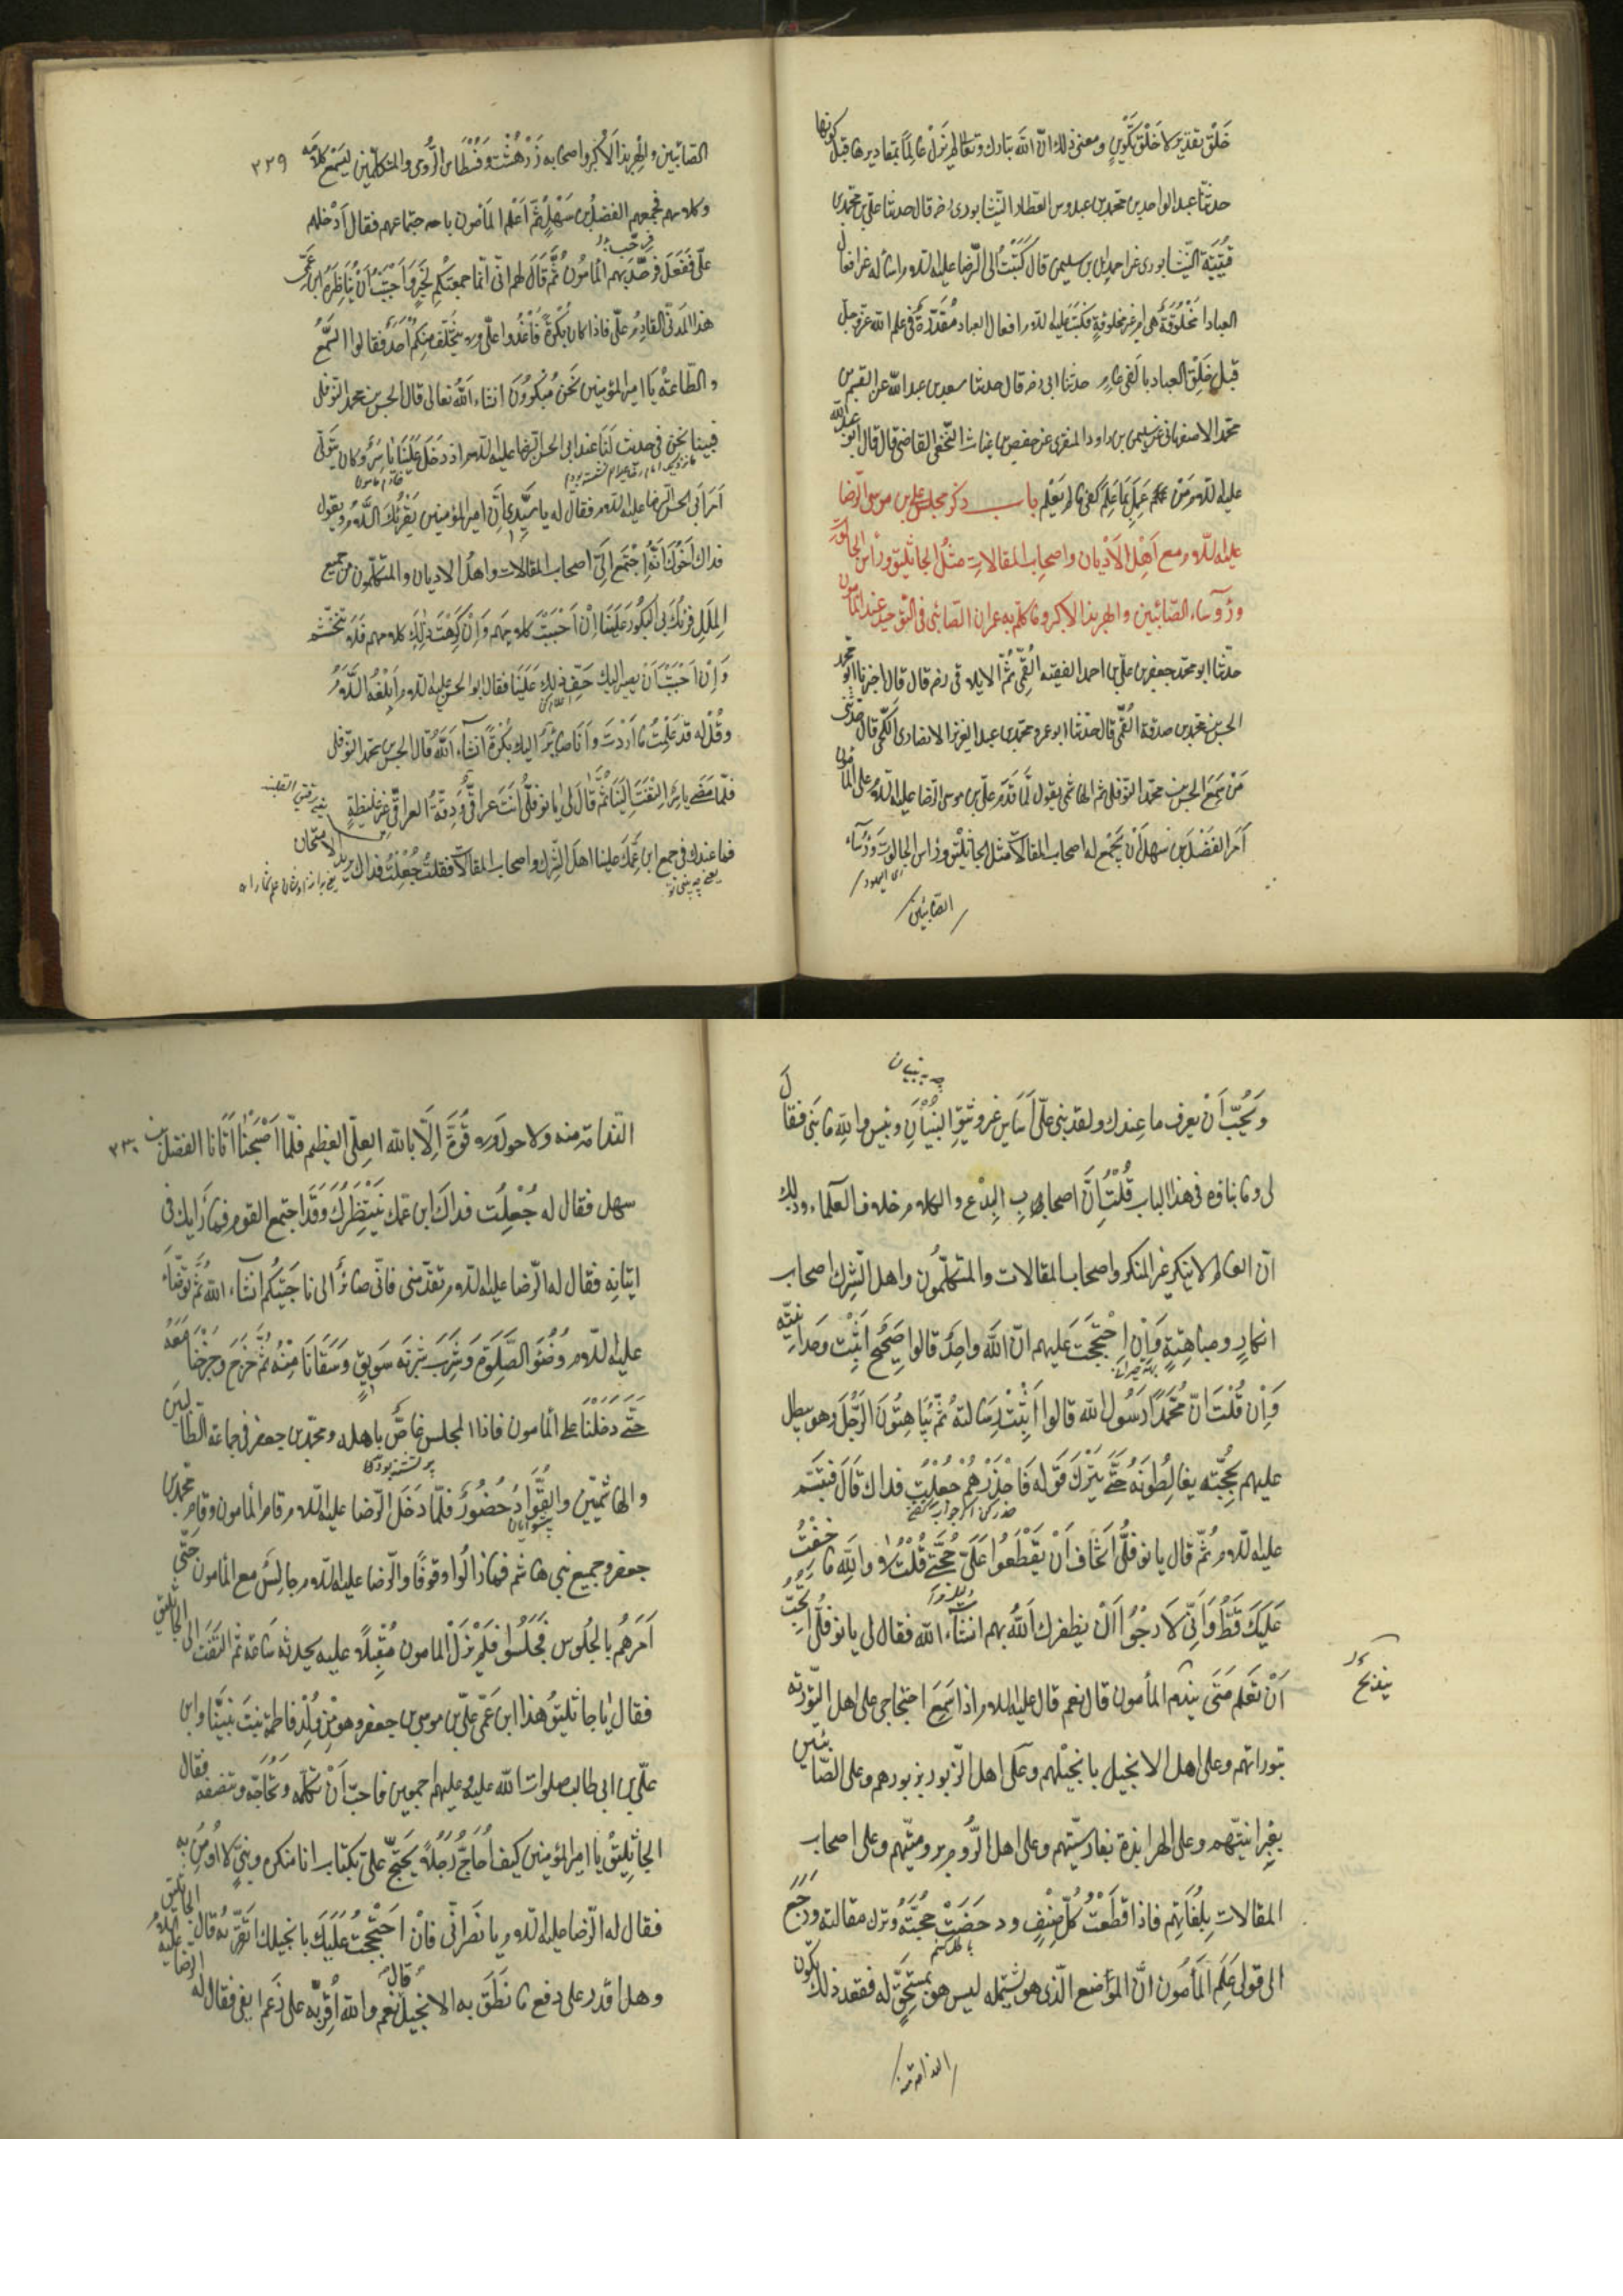 خَلْق تقدير لا خَلْق تكوين و معنى ذلك انّ الله تبارك و تعالى لم يزل عالماً بمقاديرها قبل كونها
حدثنا عبد الواحد بن محمد بن عبدوس العطار النيشابورى رضه قال حدثنا على بن محمد بن
قتيبة النيشابورى عن احمد بن سليمن قال كتبت الى الرضا عليه السلام اسأله عن افعال
العباد ا مخلوقة هى ام غير مخلوقة فكتب عليه السلام افعال العباد مقدّرة فى علم الله عزوجل
قبل خلق العباد بالفى عام حدثنا ابى رضه قال حدثنا سعد بن عبد الله عن القسم بن
محمد الاصفهانى عن سليمن بن داود المنقرى عن حفص بن غياث النخعى القاضى قال قال ابو عبد الله
عليه السلام من عمل بما علم كفى ما لم يعلم باب ذكر مجلس على بن موسى الرضا
عليه السلام مع اهل الاديان و اصحاب المقالات مثل الجاثليق و رأس الجالوت
و رؤساء الصّابئين و الهربذ الاكبر و ما كلّم به عمران الصّابئى فى التوحيد عند المأمون
حدّثنا ابو محمّد جعفر بن علىّ بن احمد الفقيه القمّى ثمّ الايلاقى رضه قال قال اخبرنا ابو محمد
الحسن بن محمد بن صدقة القمّى قال حدّثنى ابو عمرو محمّد بن عبد العزيز الانصارى الكجّى قال حدّثنى
مَنْ سَمِعَ الحسن بن محمّد النّوفلى ثم الهاشمى يقول لَمّا قَدِمَ علىّ بن موسى الرّضا عليه السلام على المأمون
أَمَرَ الفَضْلَ بن سَهْل أَنْ يَجْمَع له اصحاب المقالات مثل الجاثليق و رأس الجالوت و رؤساء
الصّابئين
٣٢٩
الصّابئين و الهربذ الاكبر و اصحابه زَرْدهُشْت و قسطاس الرّومى و المتكلّمين ليسمع كلامه
و كلامهم فجمعهم الفضل بن سَهْل ثمّ اعلم المأمون باجتماعهم فقال أَدْخلهم
علىّ ففعل فرحّب بهم المأمون ثمّ قال لهم انّى انّما جمعتكم لخير و احببت أن تناظروا ابن عمّى
هذا المدنىّ القادم علىّ فاذا كان بكرةً فاغدوا علىّ و لا يتخلّف منكم احد فقالوا السّمع
و الطّاعة يا امير المؤمنين نحن مبكّرون انشاء الله تعالى قال الحسن بن محمد النّوفلى
فبينا نحن فى حديث لنا عند ابى الحسن الرّضا عليه السلام اذ دخل علينا ياسر و كان يتولّى
امر ابى الحسن الرّضا عليه السلام فقال له يا سيّدى انّ امير المؤمنين يقرئك السّلام و يقول
فداك اخوك انّه اجتمع الىّ اصحاب المقالات و اهل الاديان و المتكلّمون من جميع
الملل فرأيك فى البكور علينا إن احببت كلامهم و إن كرهت ذلك فلا تتجشّم
و إن احببت أن نصير اليك خفّ ذلك علينا فقال ابو الحسن عليه السلام أبلغه السّلام
و قُلْ له قد علمت ما اردت و انا صائر اليك بكرة انشاء الله قال الحسن بن محمّد النّوفلى
فلمّا مضى ياسر التفت الينا ثمّ قال لى يا نوفلىّ انت عراقىّ و رقّة العراقىّ غير غليظة
فما عندك فى جمع ابن عمّك علينا اهل الشّرك و اصحاب المقالات فقلت جعلت فداك يريد الامتحان
و يُحبّ أنْ يعرف ما عندك و لقد بنى على أساس غير وثيق البنيان و بئس والله ما بنى فقال
لى و ما بناؤه فى هذا الباب قلت إنّ اصحاب البدع و الكلام خلاف العلماء و ذلك
انّ العالم لا ينكر غير المنكر و اصحاب المقالات و المتكلّمون و اهل الشرك اصحاب
انكار و مباهتة و إن احتججت عليهم انّ الله واحد قالوا صحّح وحدانيّته
و إن قلت انّ محمّداً رسول الله قالوا أثبت رسالته ثمّ يباهتون الرّجل و هو يبطل
عليهم بحجّته يغالطونه حتّى يترك قوله فاحذرهم جعلت فداك قال فتبسّم
عليه السلام ثمّ قال يا نوفلىّ اتخاف أن يقطعوا علىّ حجّتى قلت لا والله ما خفت
عليك قطّ و انّى لارجو أن يظفرك الله بهم انشاء الله فقال لى يا نوفلىّ اتحبّ
أن تعلم متى يندم المأمون قال نعم قال عليه السلام اذا سمع احتجاجى على اهل التّورية
بتوراتهم و على اهل الانجيل بانجيلهم و على اهل الزّبور بزبورهم و على الصّابئين
بعبرانيّتهم و على الهرابذة بفارسيّتهم و على اهل الرّوم بروميّتهم و على اصحاب
المقالات بلغاتهم فاذا قطعت كلّ صنف و دحضت حجّته و ترك مقالته و رجع
الى قولى علم المأمون انّ الموضع الّذى هو بسبيله ليس هو بمستحقّ له فعند ذلك تكون
الندامة منه
٣٣٠
النّدامة منه و لا حول و لا قوّة الّا بالله العلىّ العظيم فلمّا اصبحنا اتانا الفضل بن
سهل فقال له جعلت فداك ابن عمّك ينتظرك و قد اجتمع القوم فما رأيك فى
اتيانه فقال له الرّضا عليه السلام تقدّمنى فانّى صائر الى ناحيتكم انشاء الله ثمّ توضّأ
عليه السلام وضوء الصّلوة و شرب شربة سويق و سقانا منه ثمّ خرج و خرجنا معه
حتّى دخلنا على المأمون فاذا المجلس غاصّ باهله و محمّد بن جعفر فى جماعة الطّالبيّين
و الهاشميّين و القوّاد حضور فلمّا دخل الرّضا عليه السلام قام المأمون و قام محمّد بن
جعفر و جميع بنى هاشم فما زالوا وقوفاً و الرّضا عليه السلام جالس مع المأمون حتّى
أمرهم بالجلوس فجلسوا فلم يزل المامون مقبلاً عليه يحدثه ساعة ثمّ التفت الى الجاثليق
فقال يا جاثليق هذا ابن عمّى علىّ بن موسى بن جعفر و هو من ولد فاطمة بنت نبيّنا و ابن
علىّ بن ابى طالب صلوات الله عليه و عليهم اجمعين فاحبّ أن تكلّمه و تحاجّه و تنصفه فقال
الجاثليق يا امير المؤمنين كيف احاجّ رجلاً يحتجّ علىّ بكتاب انا منكره و نبىّ لا اومن به
فقال له الرّضا عليه السلام يا نصرانىّ فان احتججت عليك بانجيلك اتقرّ به قال الجاثليق
و هل اقدر على دفع ما نطق به الانجيل نعم والله اقرّ به على رغم انفى فقال له الرّضا عليه السلام